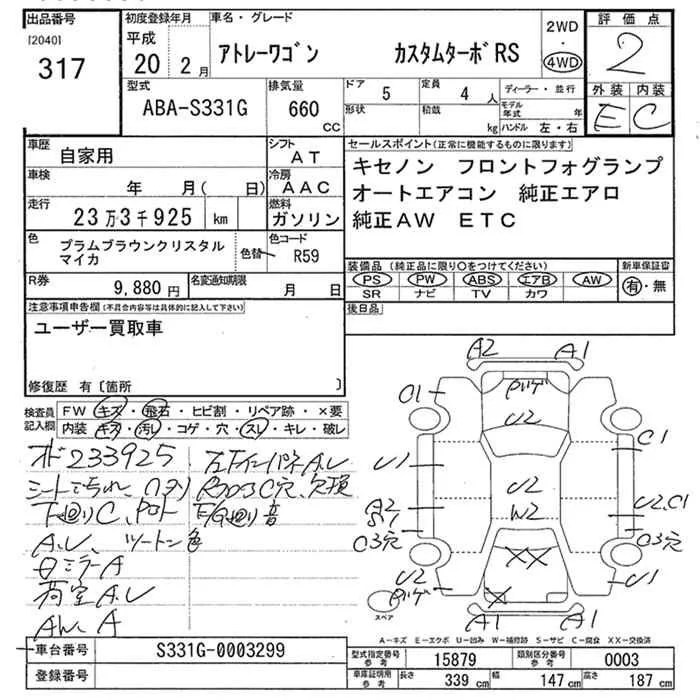 出品番号
[2040]
317
初度登録年月
平成
20 2 月
車名・グレード
アトレーワゴン カスタムターボRS
2WD
・
4WD
評価点
2
外装 内装
E C
型式
ABA-S331G
排気量
660
cc
ドア 5
形状
定員 4 人
積載 kg
ディーラー・並行
モデル年式 年
ハンドル 左・右
車歴
自家用
シフト
AT
車検
年 月( 日)
冷房
AAC
走行
23万3千925 km
燃料
ガソリン
色
プラムブラウンクリスタル
マイカ
色替
色コード
R59
R券
9,880 円
名変通知期限
月 日
セールスポイント(正常に機能するものに限ります)
キセノン フロントフォグランプ
オートエアコン 純正エアロ
純正AW ETC
装備品 (純正品に限り○をつけてください)
PS PW ABS エアB AW
SR ナビ TV カワ
新車保証書
有・無
後日品
注意事項申告欄(不具合内容等は具体的に記入して下さい)
ユーザー買取車
修復歴 有〔箇所 〕
検査員
記入欄
FW キズ・飛石・ヒビ割・リペア跡・×要
内装 キズ・汚レ・コゲ・穴・スレ・キレ・破レ
233925
シート
下廻りC
A.U、ツートン色
ミラーA
荷室A.U
AW A
E/G廻り音
A2 A1
C1
U2
C1
U1
U2
W2
U2.C1
A2
C3穴
C3穴
XX
U2
U1
X
A1 A1
スペア
A-キズ E-エクボ U-凹み W-補修跡 S-サビ C-腐食 XX-交換済
車台番号
S331G-0003299
登録番号
型式指定番号
参考
15879
類別区分番号
参考
0003
車庫証明用
参考
長さ 339 cm
幅 147 cm
高さ 187 cm